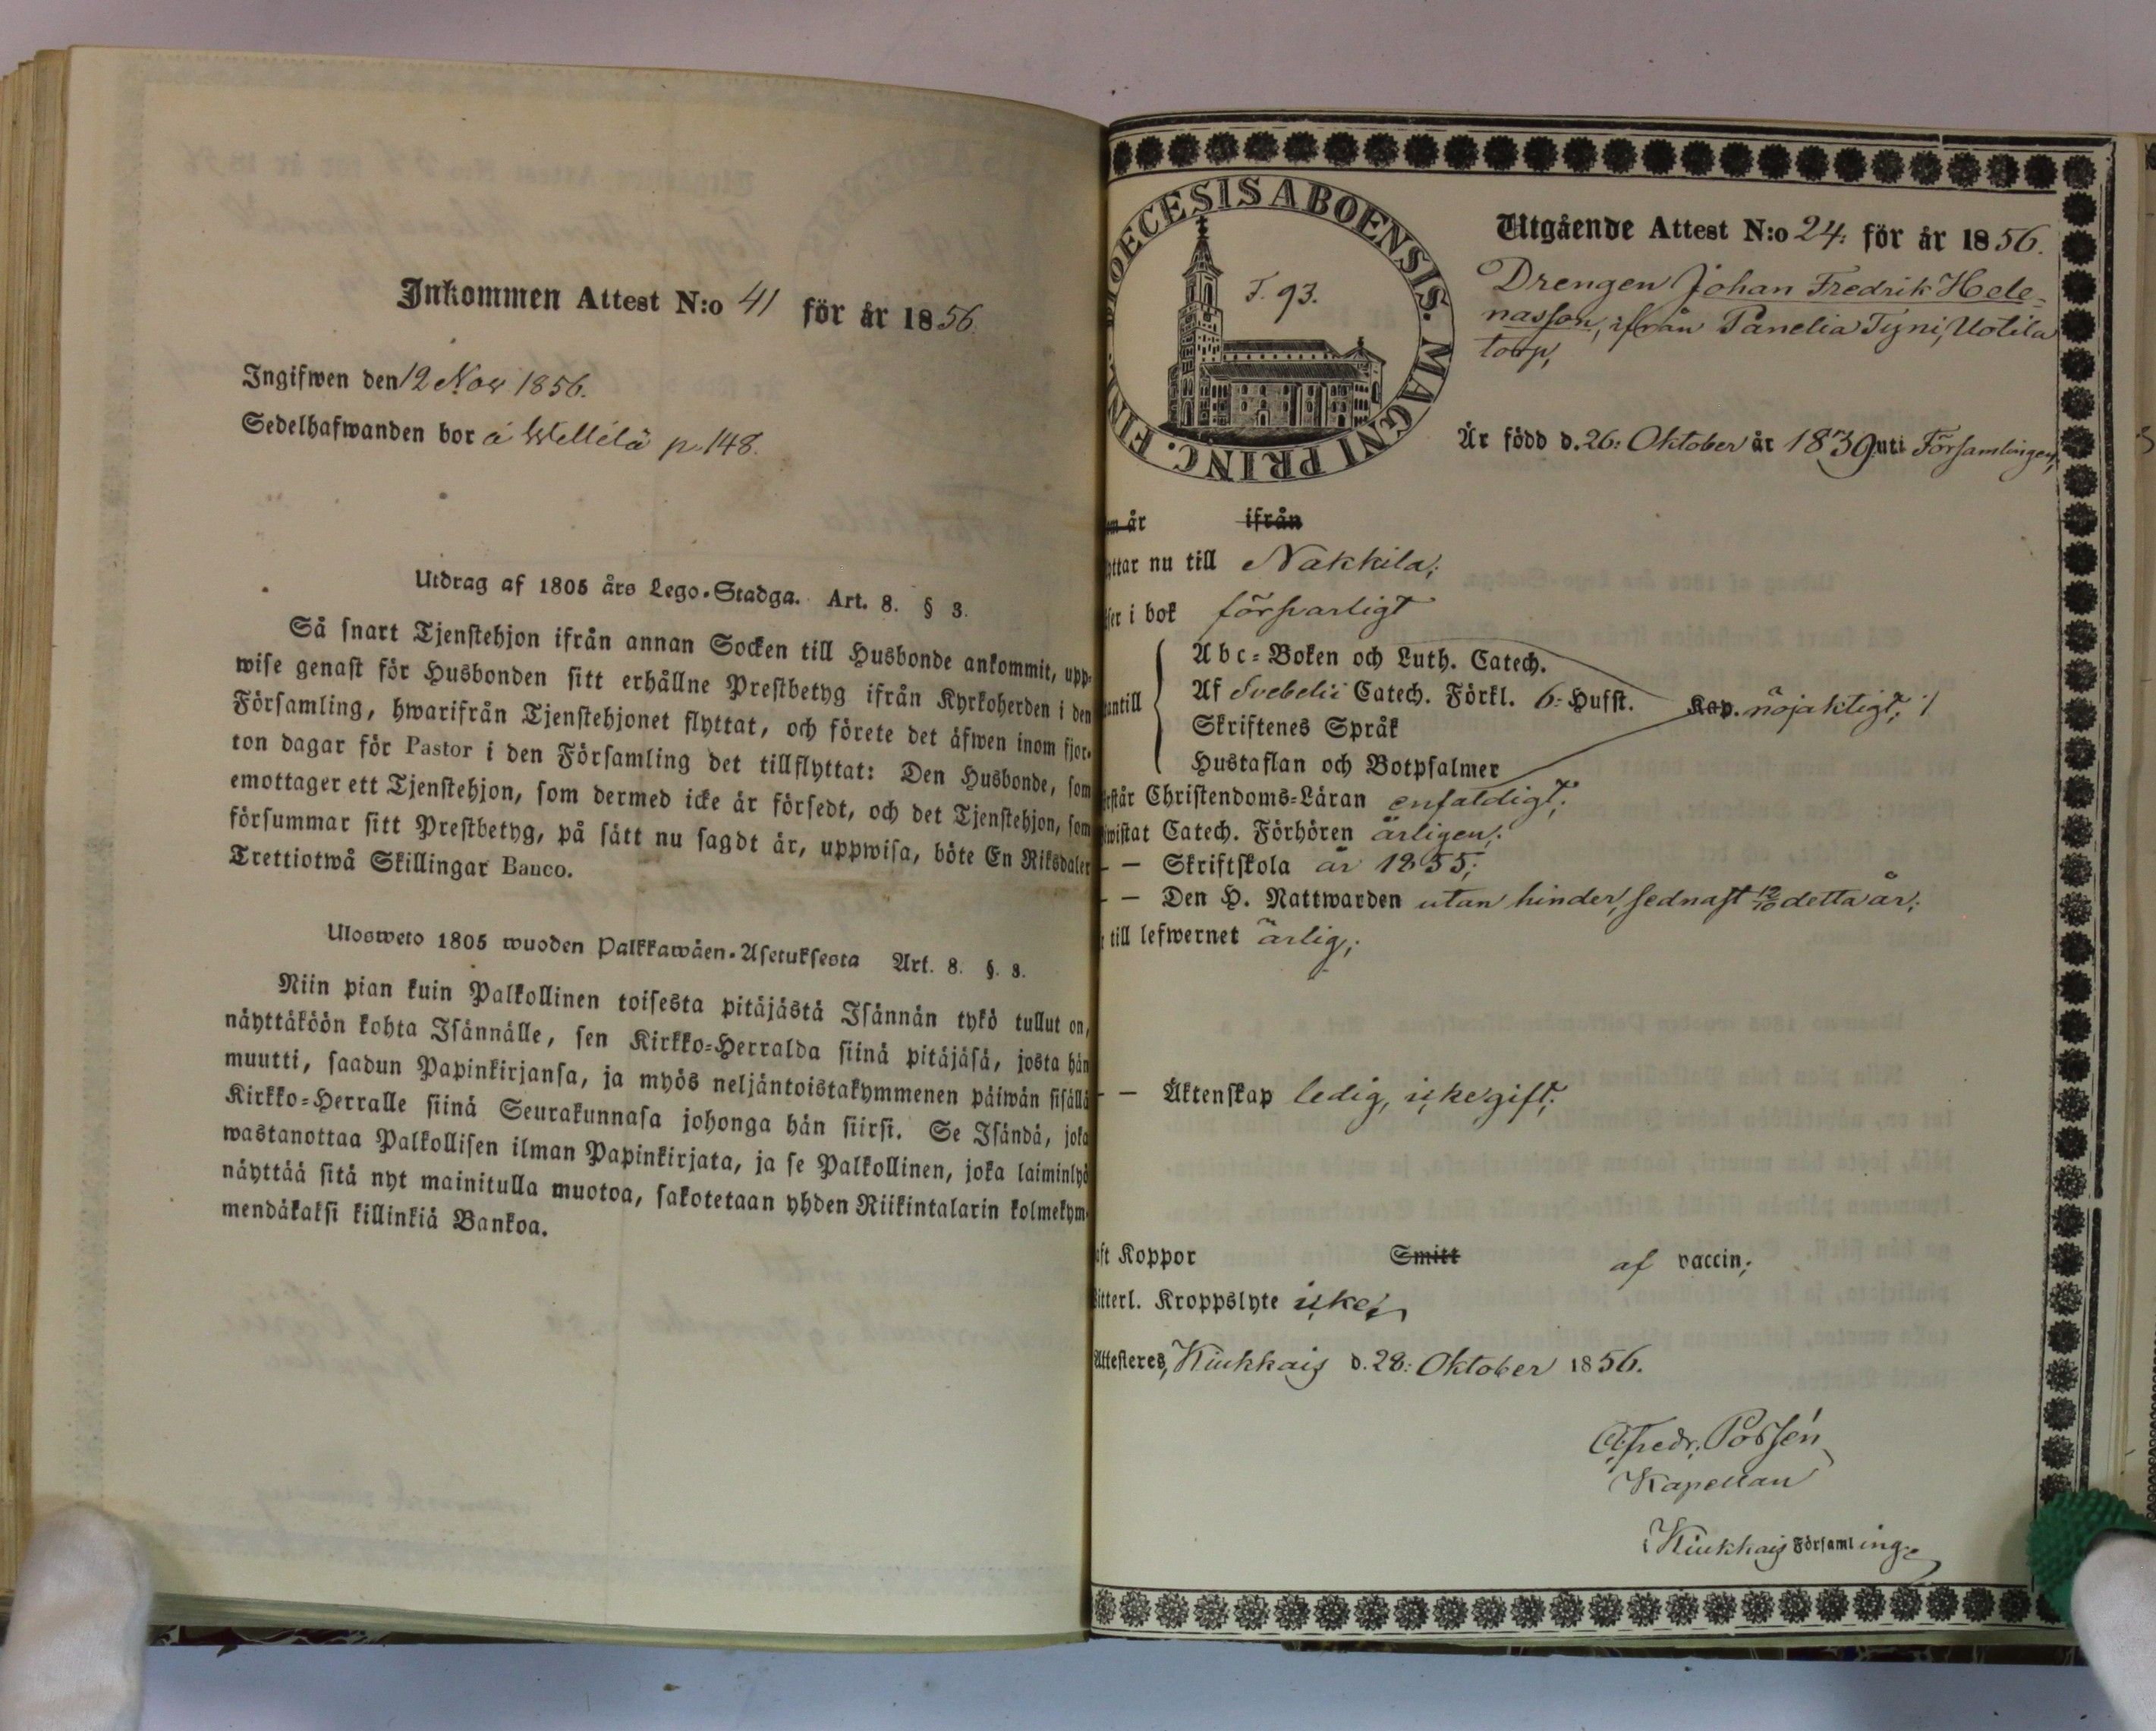 Inkommen Attest N:o 41 för år 1856.
Ingifwen den 12 Nov 1856.
Sedelhafwanden bor å Wellilä p. 148.
Utdrag af 1805 års Lego-Stadga. Art. 8. § 3.
Så snart Tjenstehjon ifrån annan Socken till Husbonde ankommit, upp-
wise genast för Husbonden sitt erhållne Prestbetyg ifrån Kyrkoherden i den
Församling, hwarifrån Tjenstehjonet flyttat, och förete det äfwen inom fjor-
ton dagar för Pastor i den Församling det tillflyttat: Den Husbonde, som
emottager ett Tjenstehjon, som dermed icke är försedt, och det Tjenstehjon, som
försummar sitt Prestbetyg, på sätt nu sagdt är, uppwisa, böte En Riksdaler
Trettiotwå Skillingar Banco.
Ulosweto 1805 wuoden Palkkawäen-Asetuksesta Art. 8. §. 3.
Niin pian kuin Palkollinen toisesta pitäjästä Isännän tykö tullut on,
näyttäköön kohta Isännälle, sen Kirkko-Herralda siinä pitäjäsä, josta hän
muutti, saadun Papinkirjansa, ja myös neljäntoistakymmenen päiwän sisällä
Kirkko-Herralle siinä Seurakunnasa johonga hän siirsi. Se Isändä, joka
wastanottaa Palkollisen ilman Papinkirjata, ja se Palkollinen, joka laiminlyö
näyttää sitä nyt mainitulla muotoa, sakotetaan yhden Riikintalarin kolmekym-
mendäkaksi killinkiä Bankoa.
DIOECESIS ABOENSIS. MAGNI PRINC. FINL.
T. 93.
Utgående Attest N:o 24: för år 1856.
Drengen Johan Fredrik Hele-
nasson, ifrån Panelia Tyni, Uotila
torp,
Är född d. 26: Oktober år 1839 uti Församlingen,
om år ifrån
yttar nu till Nakkila;
ser i bok försvarligt
Abc-Boken och Luth. Catech.
untill Af Svebelii Catech. Förkl. 6: Hufst. Kap. nöjaktigt;
Skriftenes Språk
Hustaflan och Botpsalmer
rstår Christendoms-Läran enfaldigt;
wistat Catech. Förhören årligen;
— — Skriftskola år 1855;
— — Den H. Nattwarden utan hinder, sednast 12/10 detta år;
till lefwernet ärlig;
— — Äktenskap ledig, icke gift;
aft Koppor Smitt af vaccin;
itterl. Kroppslyte icke;
Attesteres, Kiukkais d. 28: Oktober 1856.
Alfredr. Possén
Kapellan
i Kiukkais Församling